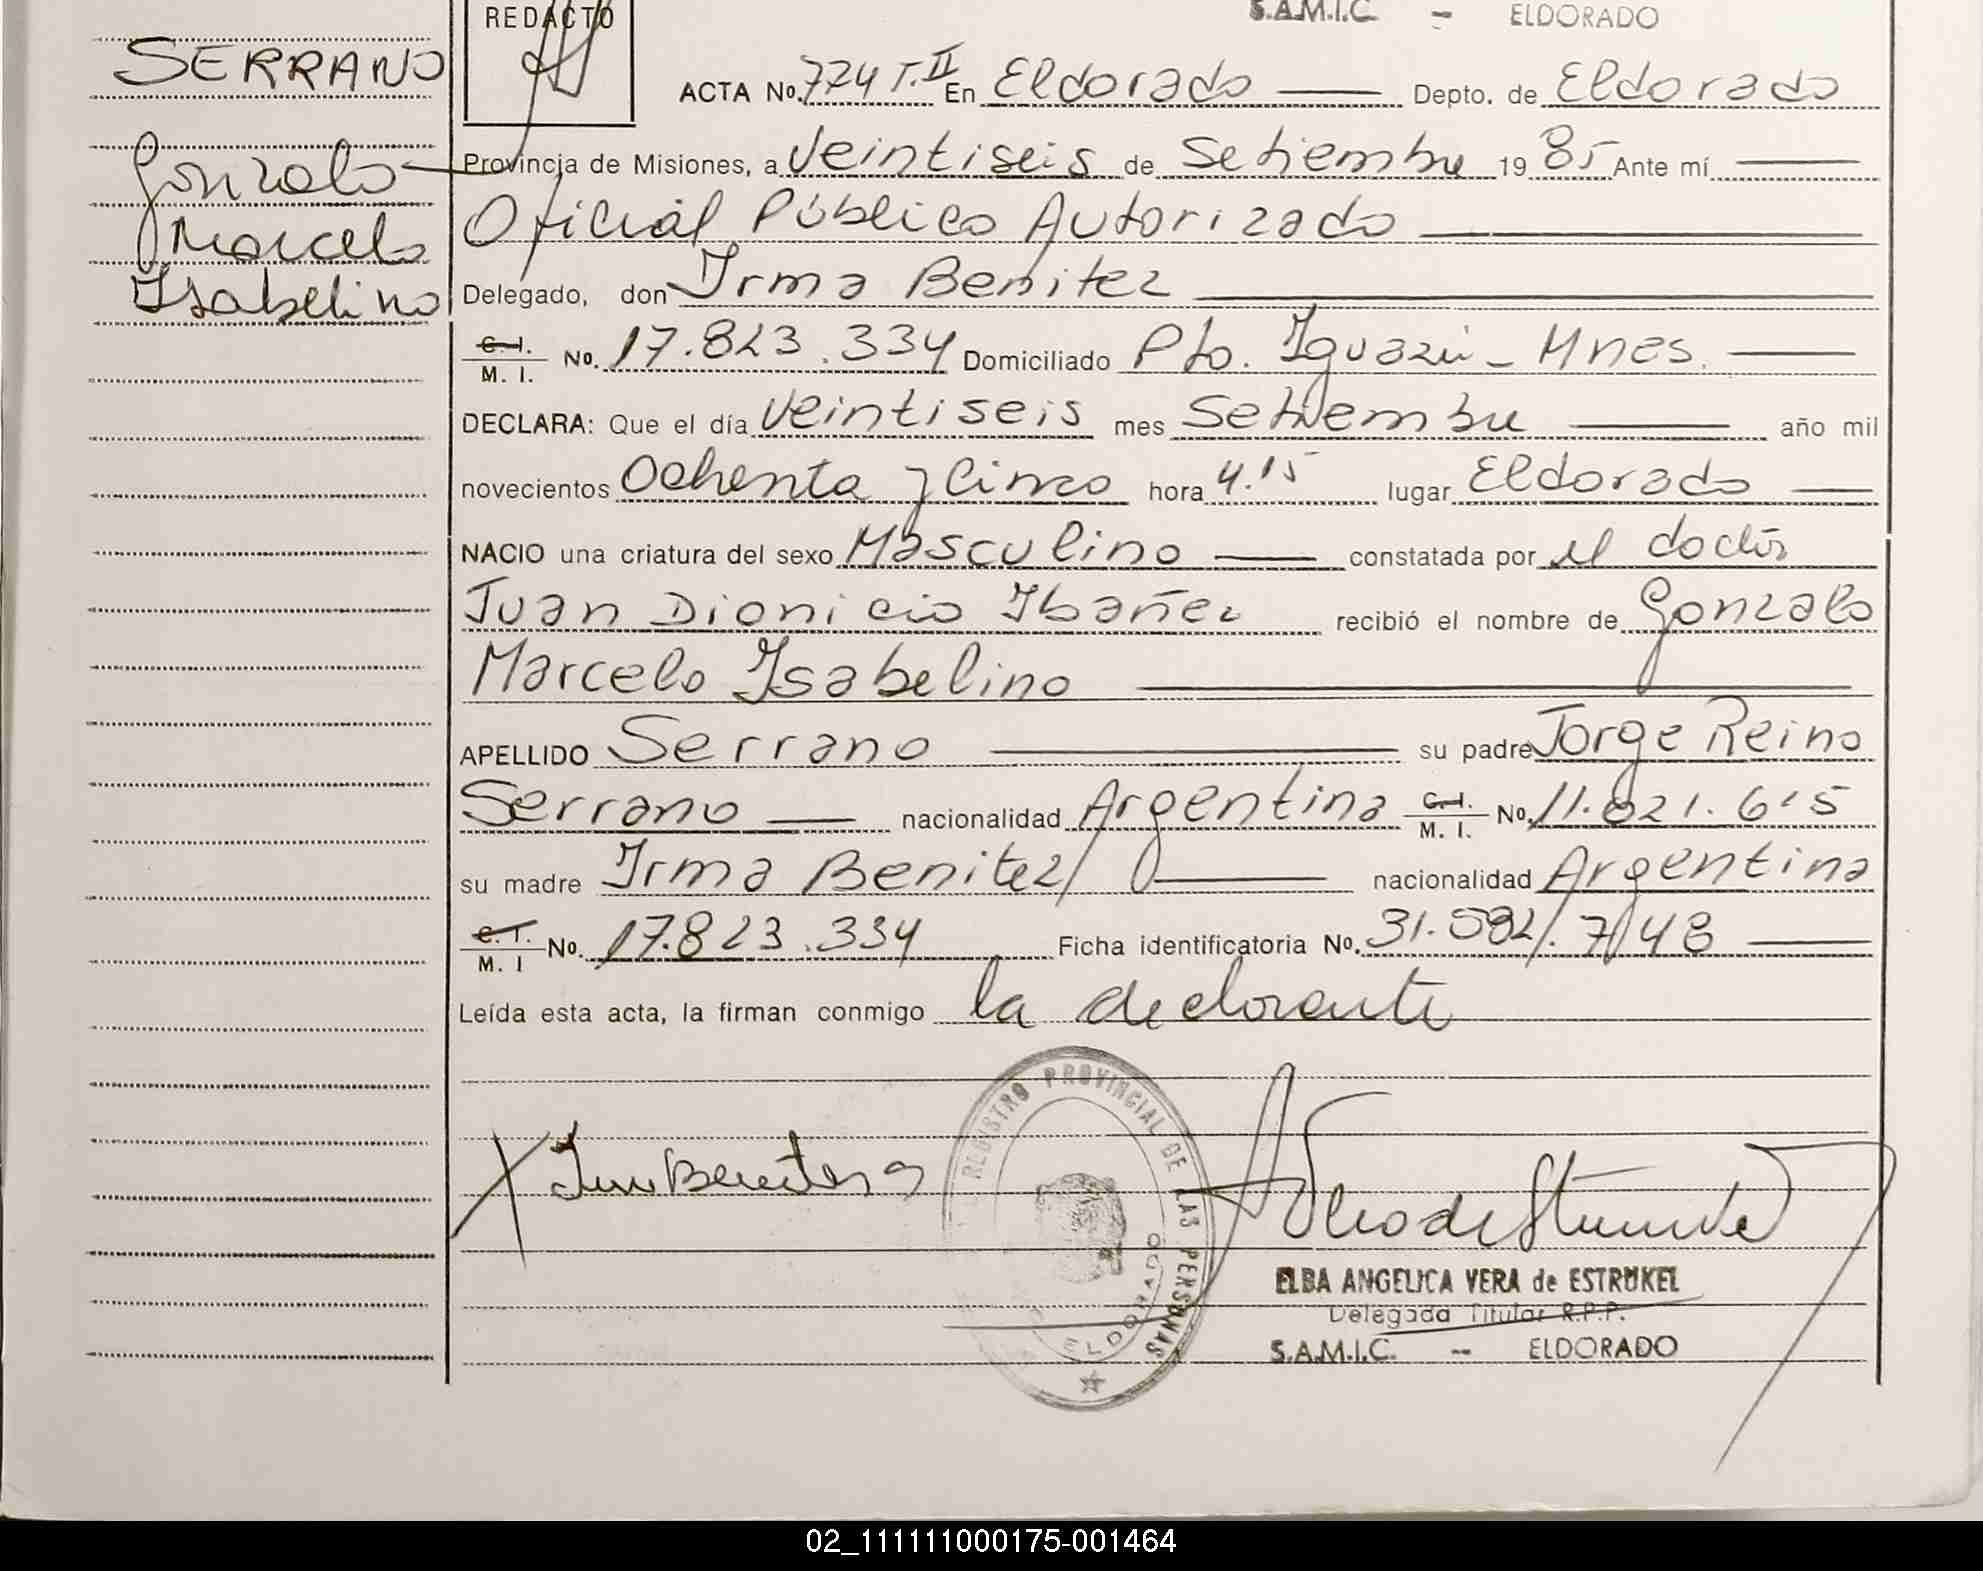 S.A.M.I.C. - ELDORADO
REDACTO
SERRANO
Gonzalo
Marcelo
Isabelino
ACTA No. 774 T.II En Eldorado Depto. de Eldorado
Provincia de Misiones, a Veintiseis de Setiembre 1985 Ante mí
Oficial Público Autorizado
Delegado, don Irma Benitez
C.I. M. I. No. 17.823.334 Domiciliado Pto. Iguazú - Mnes.
DECLARA: Que el día Veintiseis mes Setiembre año mil
novecientos Ochenta y Cinco hora 4.15 lugar Eldorado
NACIO una criatura del sexo Masculino constatada por el doctor
Juan Dionicio Ibañez recibió el nombre de Gonzalo
Marcelo Isabelino
APELLIDO Serrano su padre Jorge Reino
Serrano nacionalidad Argentina C.I. M. I. No. 11.821.615
su madre Irma Benitez nacionalidad Argentina
C.I. M. I No. 17.823.334 Ficha identificatoria No. 31.582.748
Leída esta acta, la firman conmigo la declarante
REGISTRO PROVINCIAL DE LAS PERSONAS
ELDORADO
ELBA ANGELICA VERA de ESTRUKEL
Delegada Titular R.P.P.
S.A.M.I.C. - ELDORADO
02_111111000175-001464